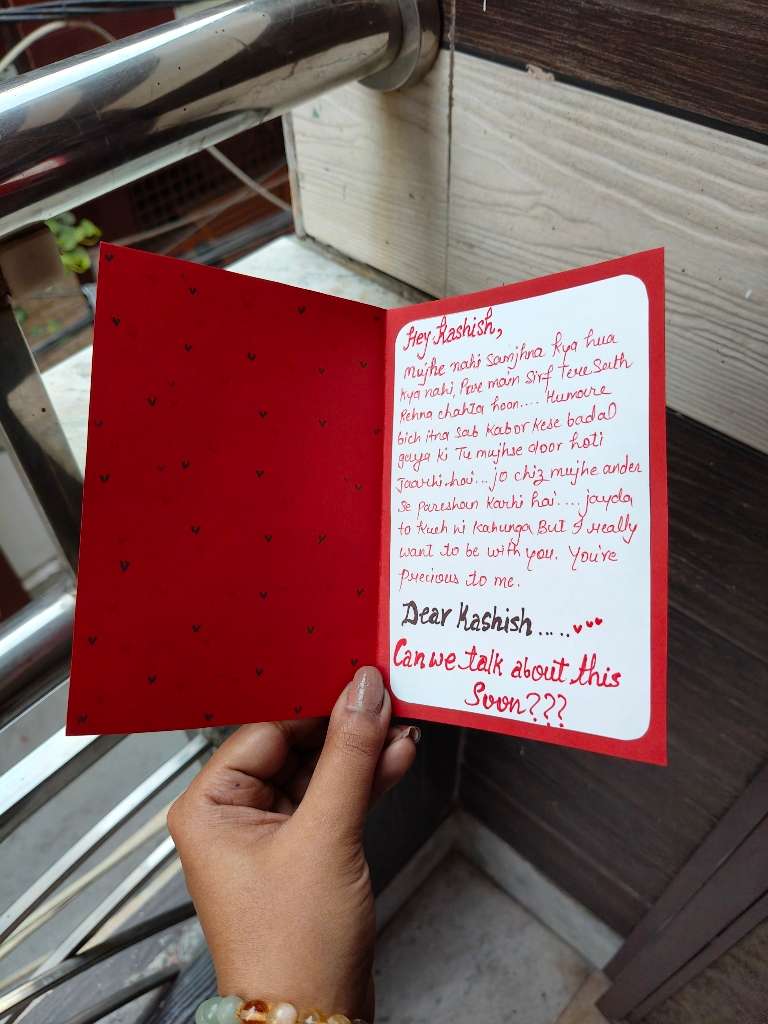 Hey Kashish,
Mujhe nahi samjhna kya hua
kya nahi, Pare main Sirf Tere Sath
Rehna chahta hoon.... Humare
bich itna sab kabor kese badal
gaya ki Tu mujhse door hoti
Jaarhi hai... jo chiz mujhe ander
se pareshan karhi hai.... jayda
to kuch ni kahunga But I really
want to be with you. You're
Precious to me.
Dear Kashish.....
Can we talk about this
Soon???